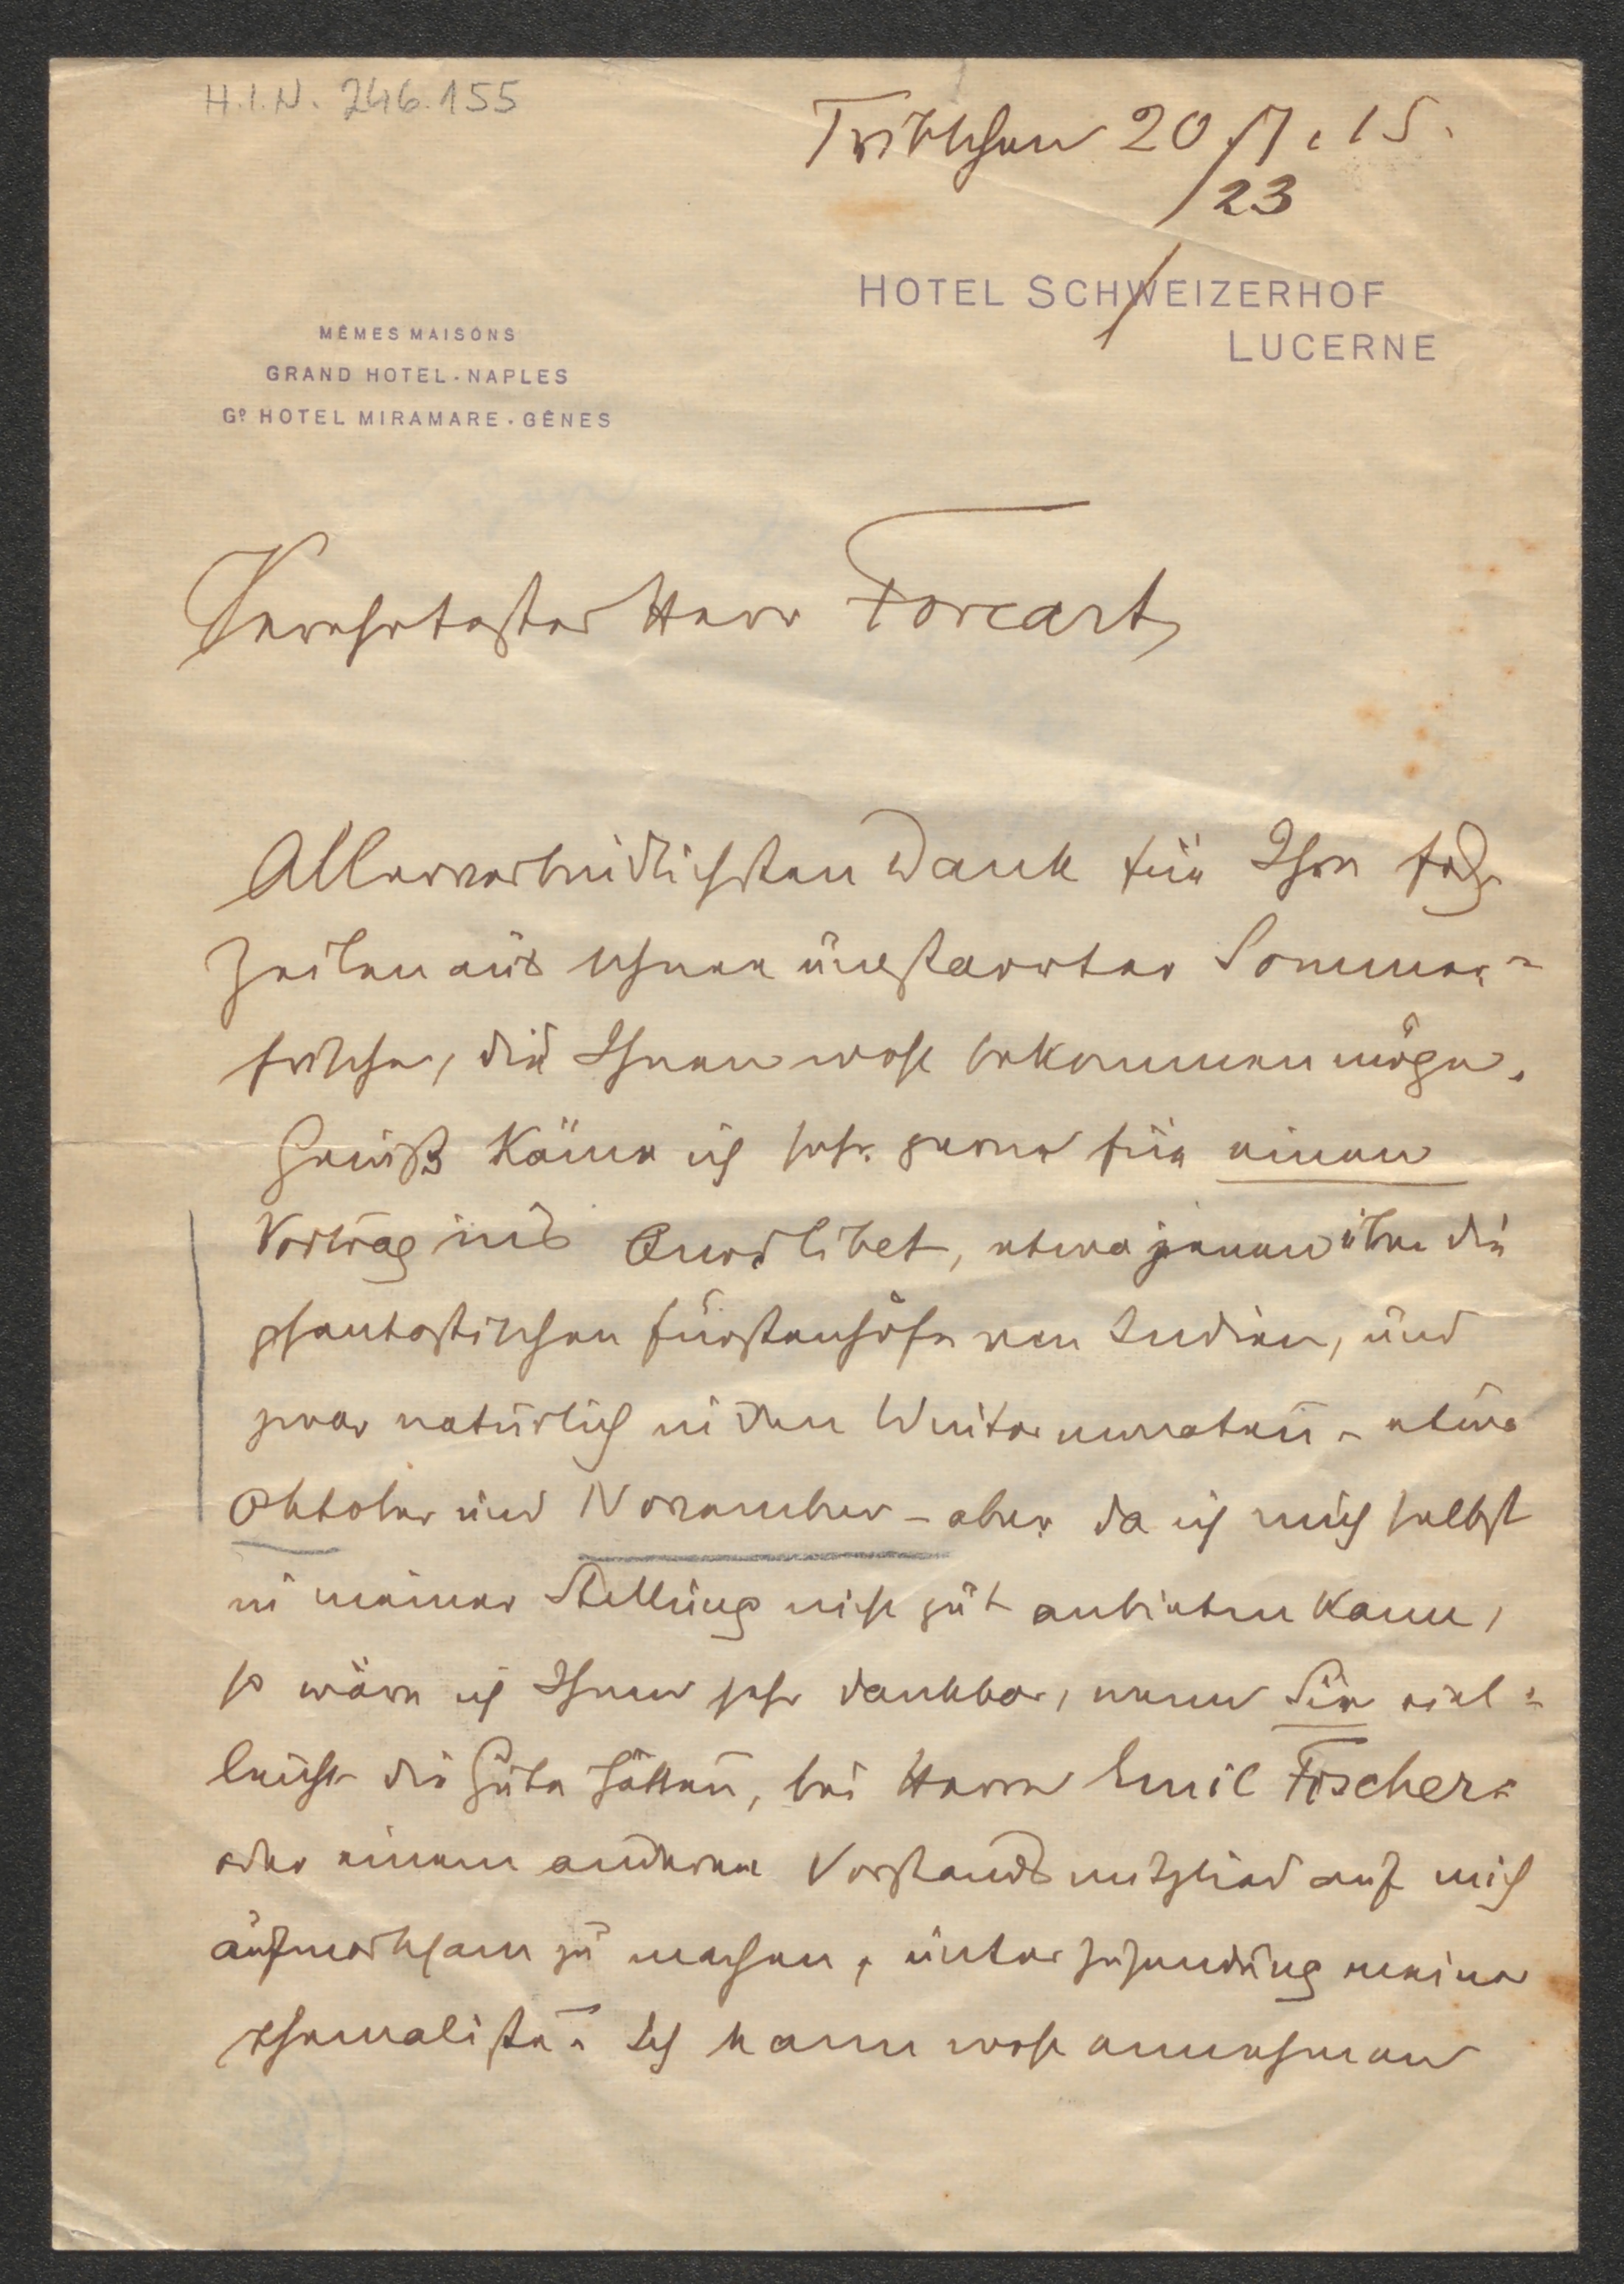 H.I.N. 246.155
Tribschen 20/7. 15.
/23
HOTEL SCHWEIZERHOF
LUCERNE
MÊMES MAISONS
GRAND HOTEL - NAPLES
Gᴰ HOTEL MIRAMARE - GÊNES
Verehrtester Herr Forcart,
Allerverbindlichsten Dank für Ihre
Zeilen aus Sommer-
frische, die Ihnen wohl bekommen möge.
Gewiß käme ich sehr gerne für einen
Vortrag ins Quodlibet, etwa jenen über die
phantastischen Fürstenhöfe von Indien, und
zwar natürlich in den Wintermonaten - etwa
Oktober und November - aber da ich mich selbst
in meiner Stellung nicht gut anbieten kann,
so wäre ich Ihnen sehr dankbar, wenn Sie viel-
leicht die Güte hätten, bei Herrn Emil Fischer
oder einem anderen Vorstandsmitglied auf mich
aufmerksam zu machen, unter Zusendung meiner
Themaliste. Ich kann wohl annehmen